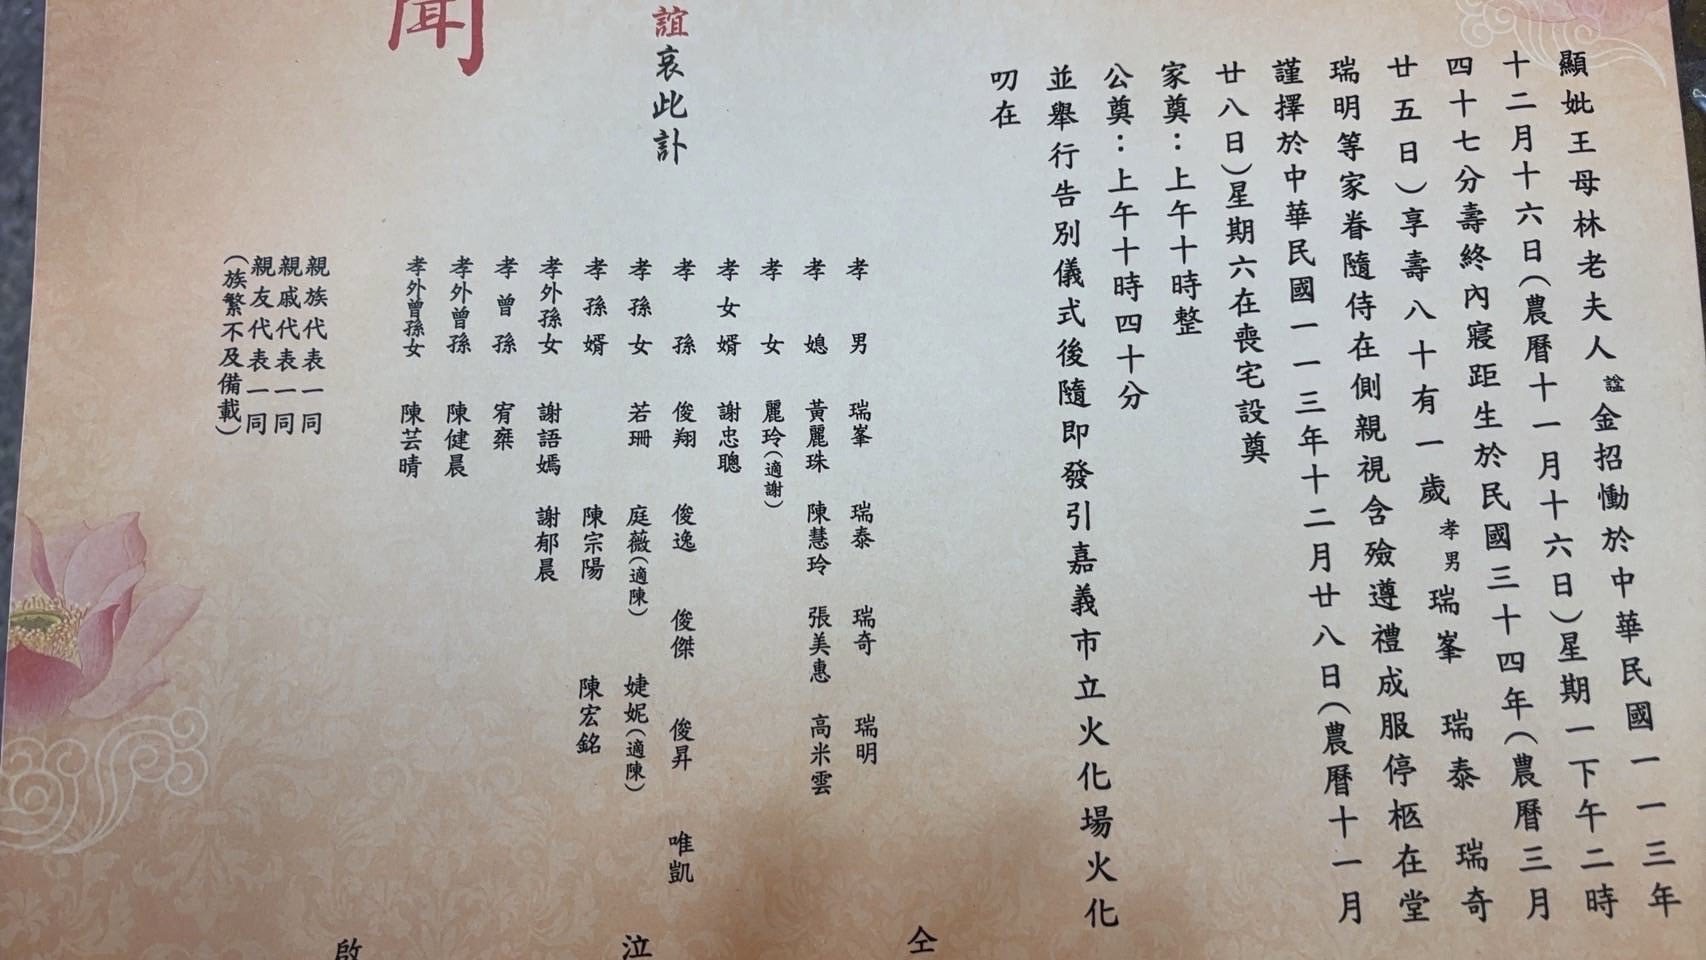 顯妣王母林老夫人諡金招慟於中華民國一一三年
十二月十六日(農曆十一月十六日)星期一下午二時
四十七分壽終內寢距生於民國三十四年(農曆三月
廿五日)享壽八十有一歲孝男瑞峯 瑞泰 瑞奇
瑞明等家眷隨侍在側親視含殮遵禮成服停柩在堂
謹擇於中華民國一一三年十二月廿八日(農曆十一月
廿八日)星期六在喪宅設奠
家奠：上午十時整
公奠：上午十時四十分
並舉行告別儀式後隨即發引嘉義市立火化場火化
叨在
誼哀此訃
聞
孝男 瑞峯 瑞泰 瑞奇 瑞明
孝媳 黃麗珠 陳慧玲 張美惠 高米雲
孝女 麗玲(適謝)
孝女婿 謝忠聰
孝孫 俊翔 俊逸 俊傑 俊昇 唯凱
孝孫女 若珊 庭薇(適陳) 婕妮(適陳)
孝孫婿 陳宗陽 陳宏銘
孝外孫女 謝語嫣 謝郁晨
孝曾孫 宥橤
孝外曾孫 陳健晨
孝外曾孫女 陳芸晴
親族代表一同
親戚代表一同
親友代表一同
(族繁不及備載)
仝 泣 啟